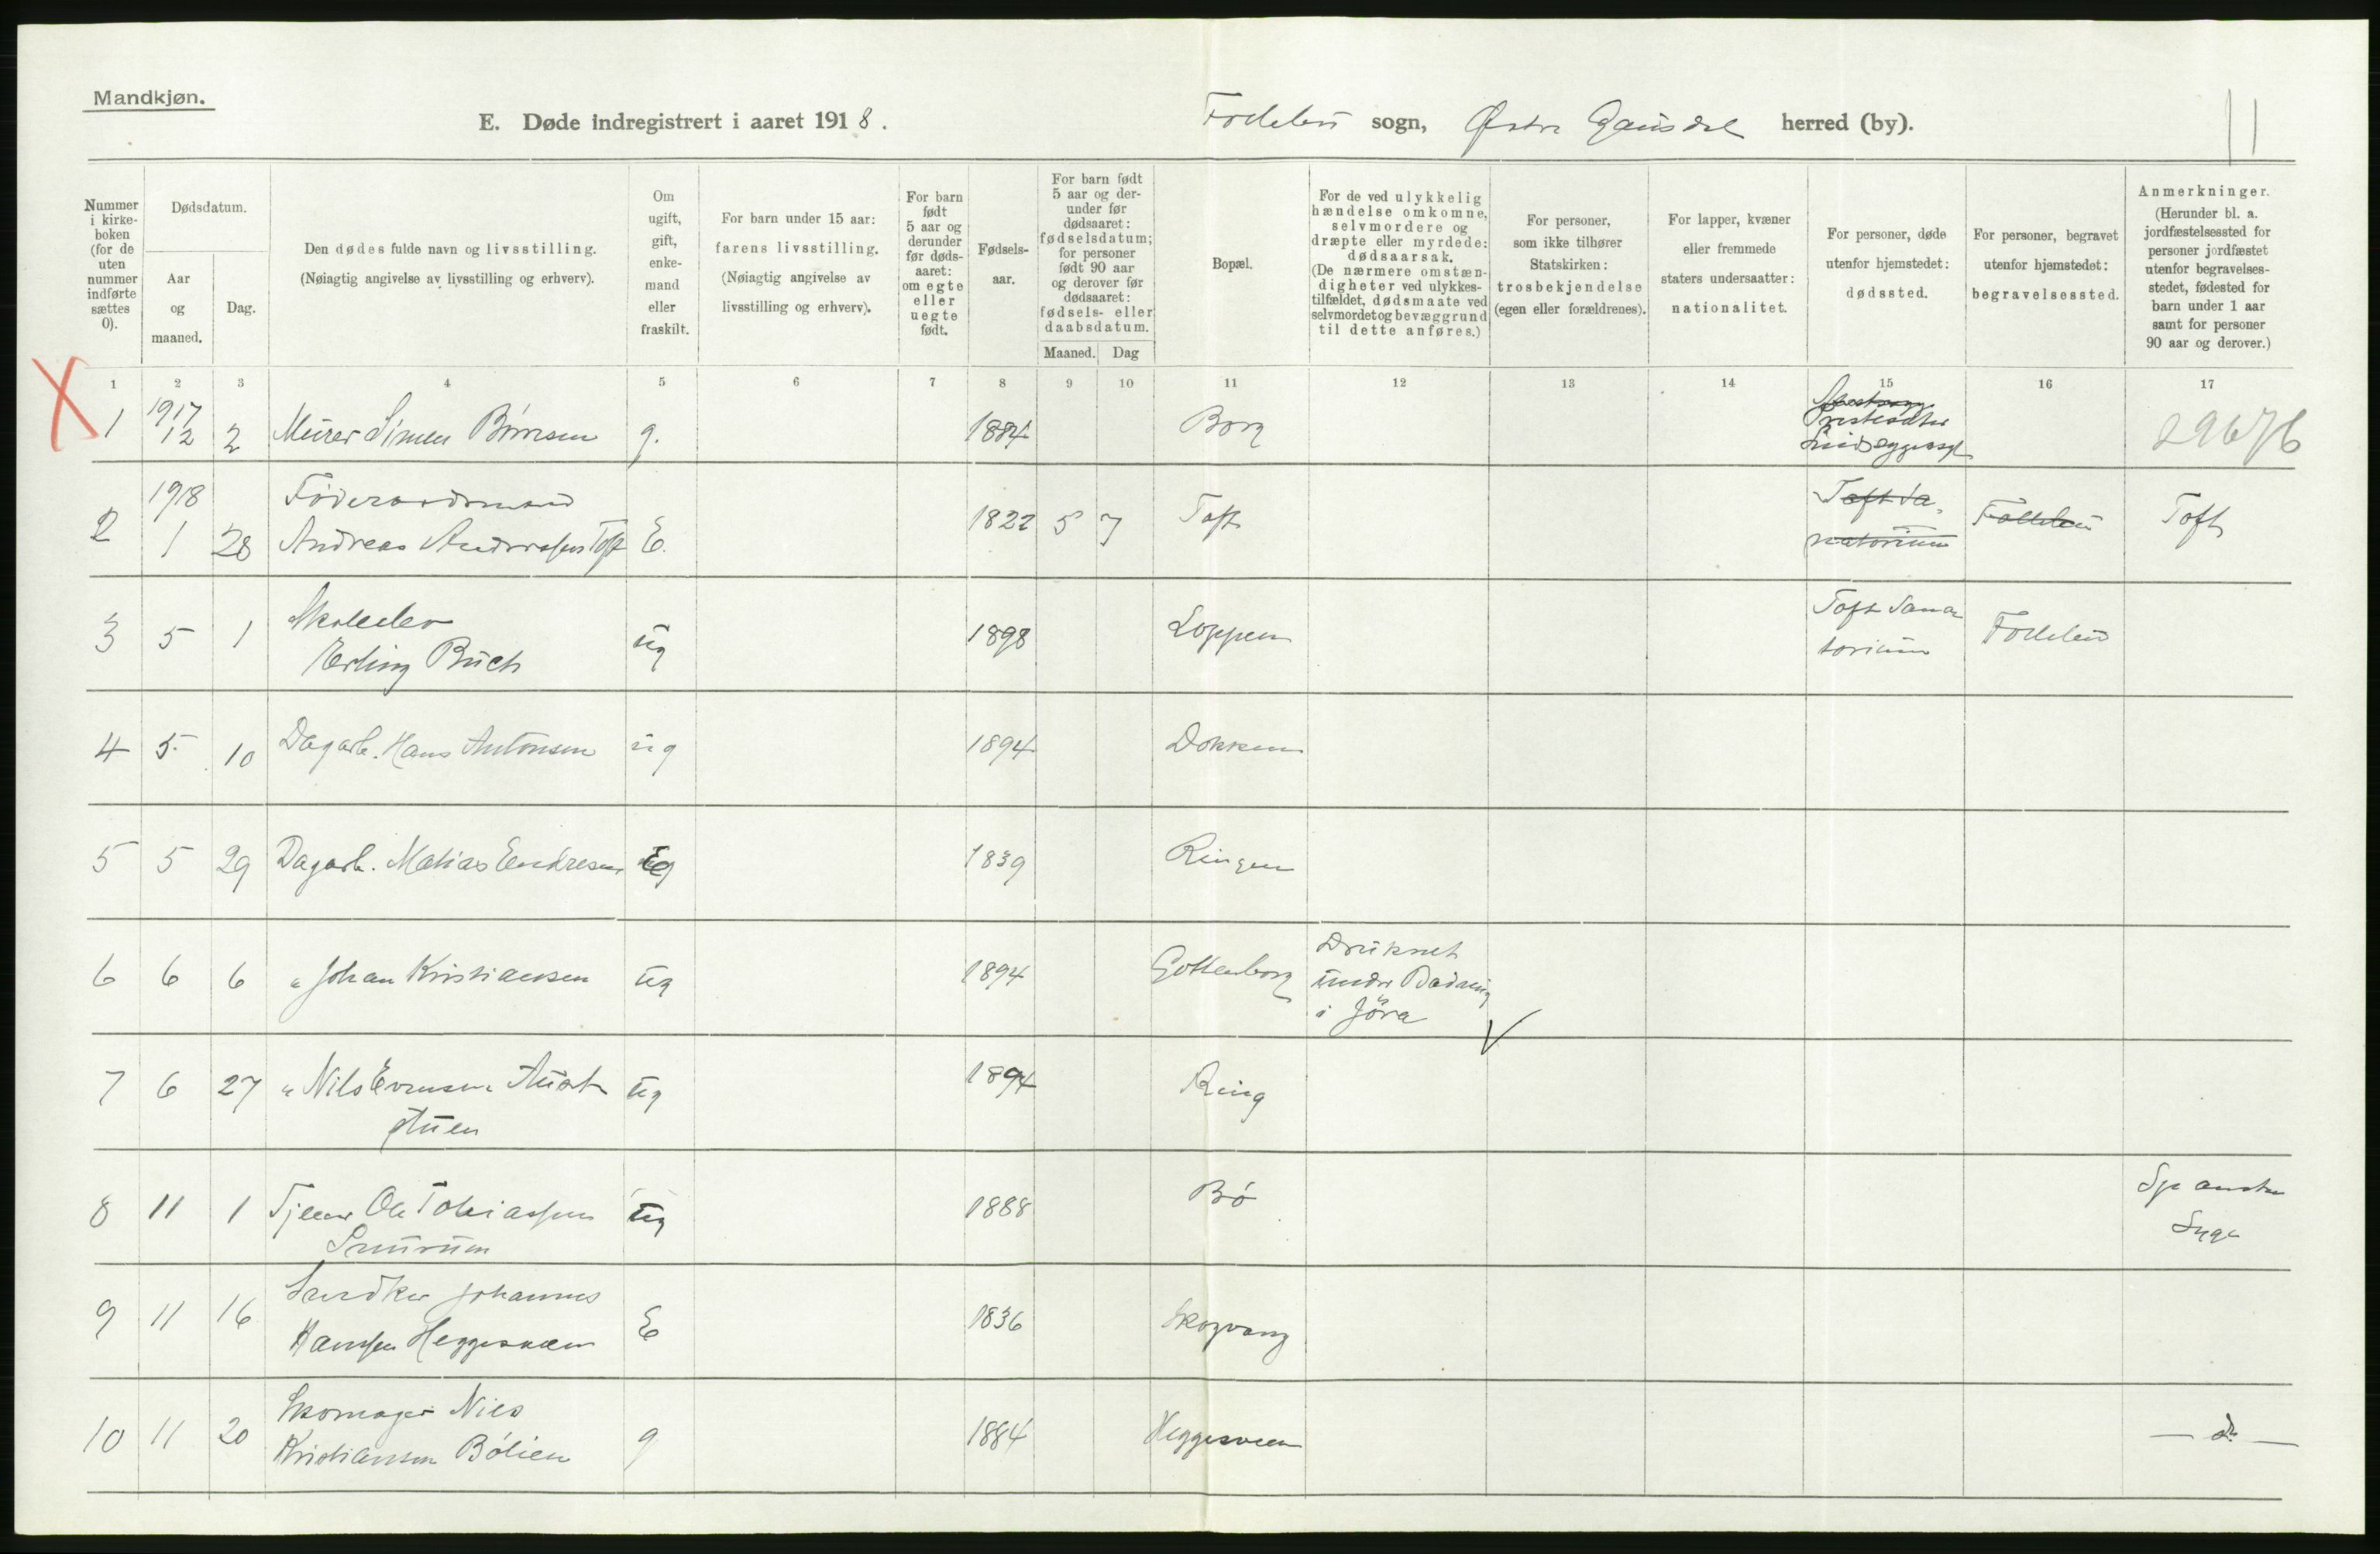 Mandkjøn.
E. Døde indregistrert i aaret 1918.
Follebu sogn, Østre Gausdal herred (by).
11
Nummer i kirke- boken (for de uten nummer indførte sættes 0).
Dødsdatum.
Aar og maaned.
Dag.
Den dødes fulde navn og livsstilling.
(Nøiagtig angivelse av livsstilling og erhverv).
Om ugift, gift, enke- mand eller fraskilt.
For barn under 15 aar:
farens livsstilling.
(Nøiagtig angivelse av
livsstilling og erhverv).
For barn født 5 aar og derunder før døds- aaret: om egte eller uegte født.
Fødsels- aar.
For barn født 5 aar og der- under før dødsaaret: fødselsdatum; for personer født 90 aar og derover før dødsaaret: fødsels- eller daabsdatum.
Maaned. Dag
Bopæl.
For de ved ulykkelig hændelse omkomne, selvmordere og dræpte eller myrdede: dødsaarsak. (De nærmere omstæn- digheter ved ulykkes- tilfældet, dødsmaate ved selvmordet og bevæggrund til dette anføres.)
For personer, som ikke tilhører Statskirken: trosbekjendelse (egen eller forældrenes).
For lapper, kvæner eller fremmede staters undersaatter: nationalitet.
For personer, døde utenfor hjemstedet: dødssted.
For personer, begravet utenfor hjemstedet: begravelsessted.
Anmerkninger. (Herunder bl. a. jordfæstelsessted for personer jordfæstet utenfor begravelses- stedet, fødested for barn under 1 aar samt for personer 90 aar og derover.)
1 2 3 4 5 6 7 8 9 10 11 12 13 14 15 16 17
X
1 1917 12 2 Murer Simen g. 1884 Borg 29676
2 1918 1 28 Føderaadsmand
Andreas Anderssen Toft E. 1822 5 7 Toft Toft Sa-
natorium Follebu Toft
3 5 1 Skoleelev
Erling Buch ug 1898 Loppen Toft Sana
torium Follebu
4 5 10 Dagarb. Hans Antonsen ug 1894 Dokken
5 5 29 Dagarb. Matias Endresen 1839 Ringen
6 6 6 " Johan Kristiansen ug 1894 Gottenborg Druknet
under Badning
i Jöra
7 6 27 " Nils Evensen Aust
stuen ug 1894 Ring
8 11 1 Tjener Ole Tobiassen
ug 1888 Bø Spanske
Syge
9 11 16 Snedker Johannes
Hansen Heggesveen E 1836 Skogvang
10 11 20 Skomager Nils
Kristiansen Bölien g 1884 Heggesveen — do —